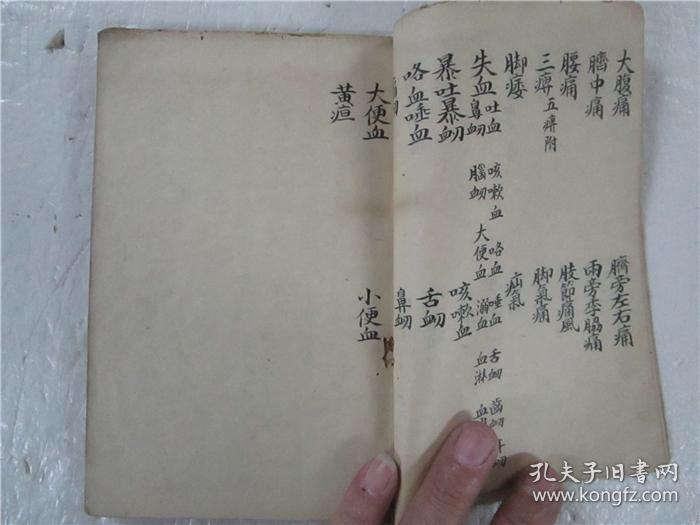 大腹痛
臍旁左右痛
臍中痛
兩旁季脇痛
腰痛
肢節痛風
三痺 五痺附
脚氣痛
脚痿
疝氣
失血 吐血 咳嗽血 咯血 唾血 舌衂 齒衂
鼻衂 腦衂 大便血 溺血 血淋
暴吐暴衂
咳嗽血
咯血唾血
舌衂
鼻衂
大便血
小便血
黃疸
孔夫子旧书网
www.kongfz.com